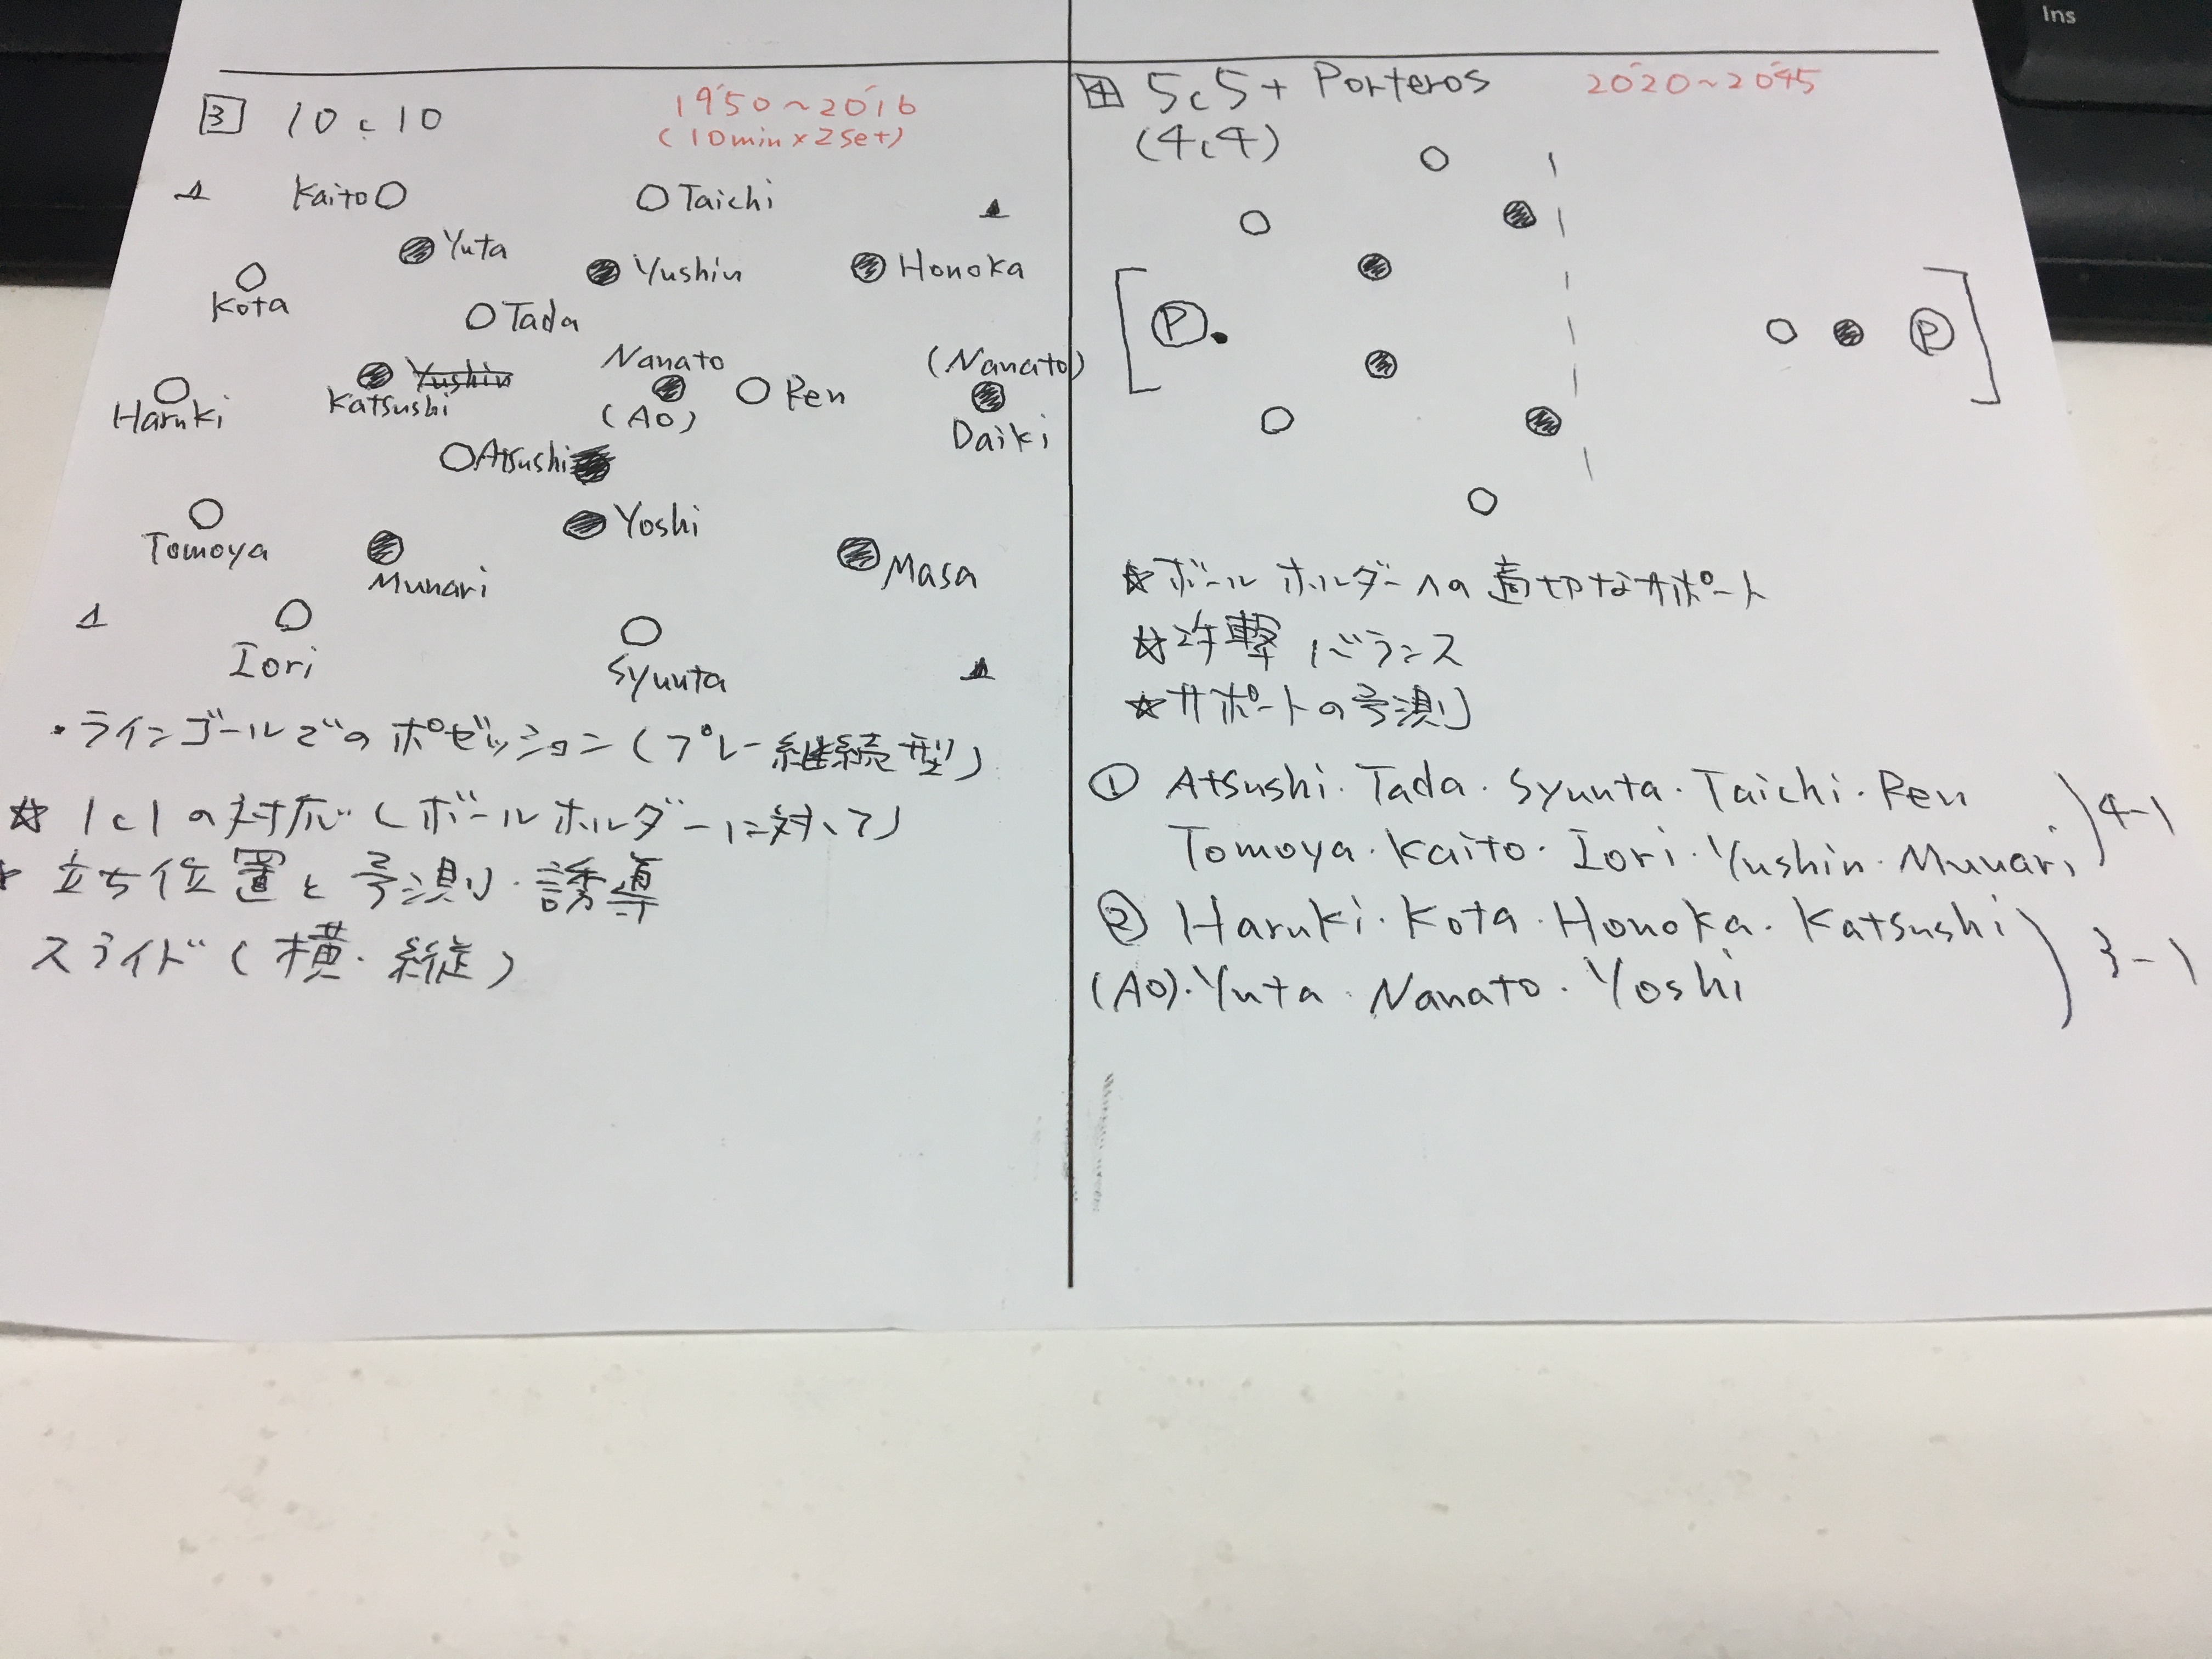 Ins
3 10c10
19'50~20'16
(10min×2set)
Kaito
Taichi
Yuta
Yushin
Honoka
Kota
Tada
Nanato
(Nanato)
Haruki
Katsushi
Yushin
(AO)
Ren
Daiki
Atsushi
Yoshi
Tomoya
Munari
Masa
Iori
Syunta
・ラインゴールでのポゼッション(プレー継続型)
☆1c1の対応(ボールホルダーに対して)
立ち位置と予測・誘導
スライド(横・縦)
4 5c5+Porteros
20'20~20'45
(4c4)
P
P
☆ボールホルダーへの適切なサポート
☆攻撃バランス
☆サポートの予測
① Atsushi・Tada・Syunta・Taichi・Ren
Tomoya・Kaito・Iori・Yushin・Munari
4-1
② Haruki・Kota・Honoka・Katsushi
(AO)・Yuta・Nanato・Yoshi
3-1